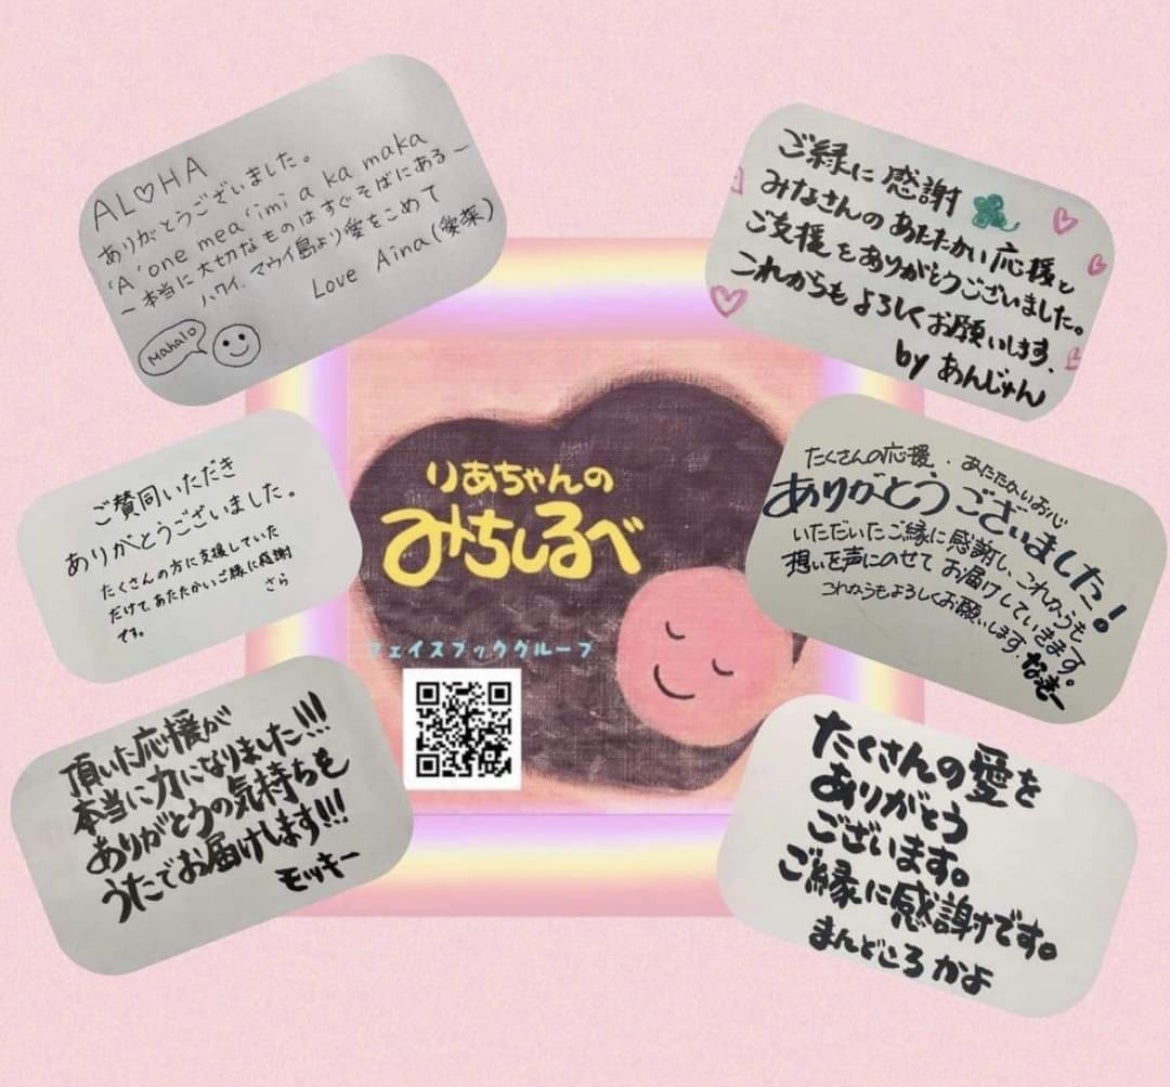 AL♡HA
ありがとうございました。
'A 'one mea 'imi a ka maka
～本当に大切なものはすぐそばにある～
ハワイ、マウイ島より愛をこめて
Love Aina(愛菜)
Mahalo
ご縁に感謝
みなさんのあたたかい応援と
ご支援をありがとうございました。
これからもよろしくお願いします.
by あんじゅん
ご賛同いただき
ありがとうございました。
たくさんの方に支援していた
だけて、あたたかいご縁に感謝
です。
さら
りあちゃんの
みちしるべ
フェイスブックグループ
たくさんの応援、あたたかいお心
ありがとうございました!
いただいたご縁に感謝し、これからも
想いを声にのせてお届けしていきます。
これからもよろしくお願いします.
なきー
頂いた応援が
本当に力になりました!!!
ありがとうの気持ちを
うたでお届けします!!!
モッキー
たくさんの愛を
ありがとう
ございます。
ご縁に感謝です。
まんどころ かよ